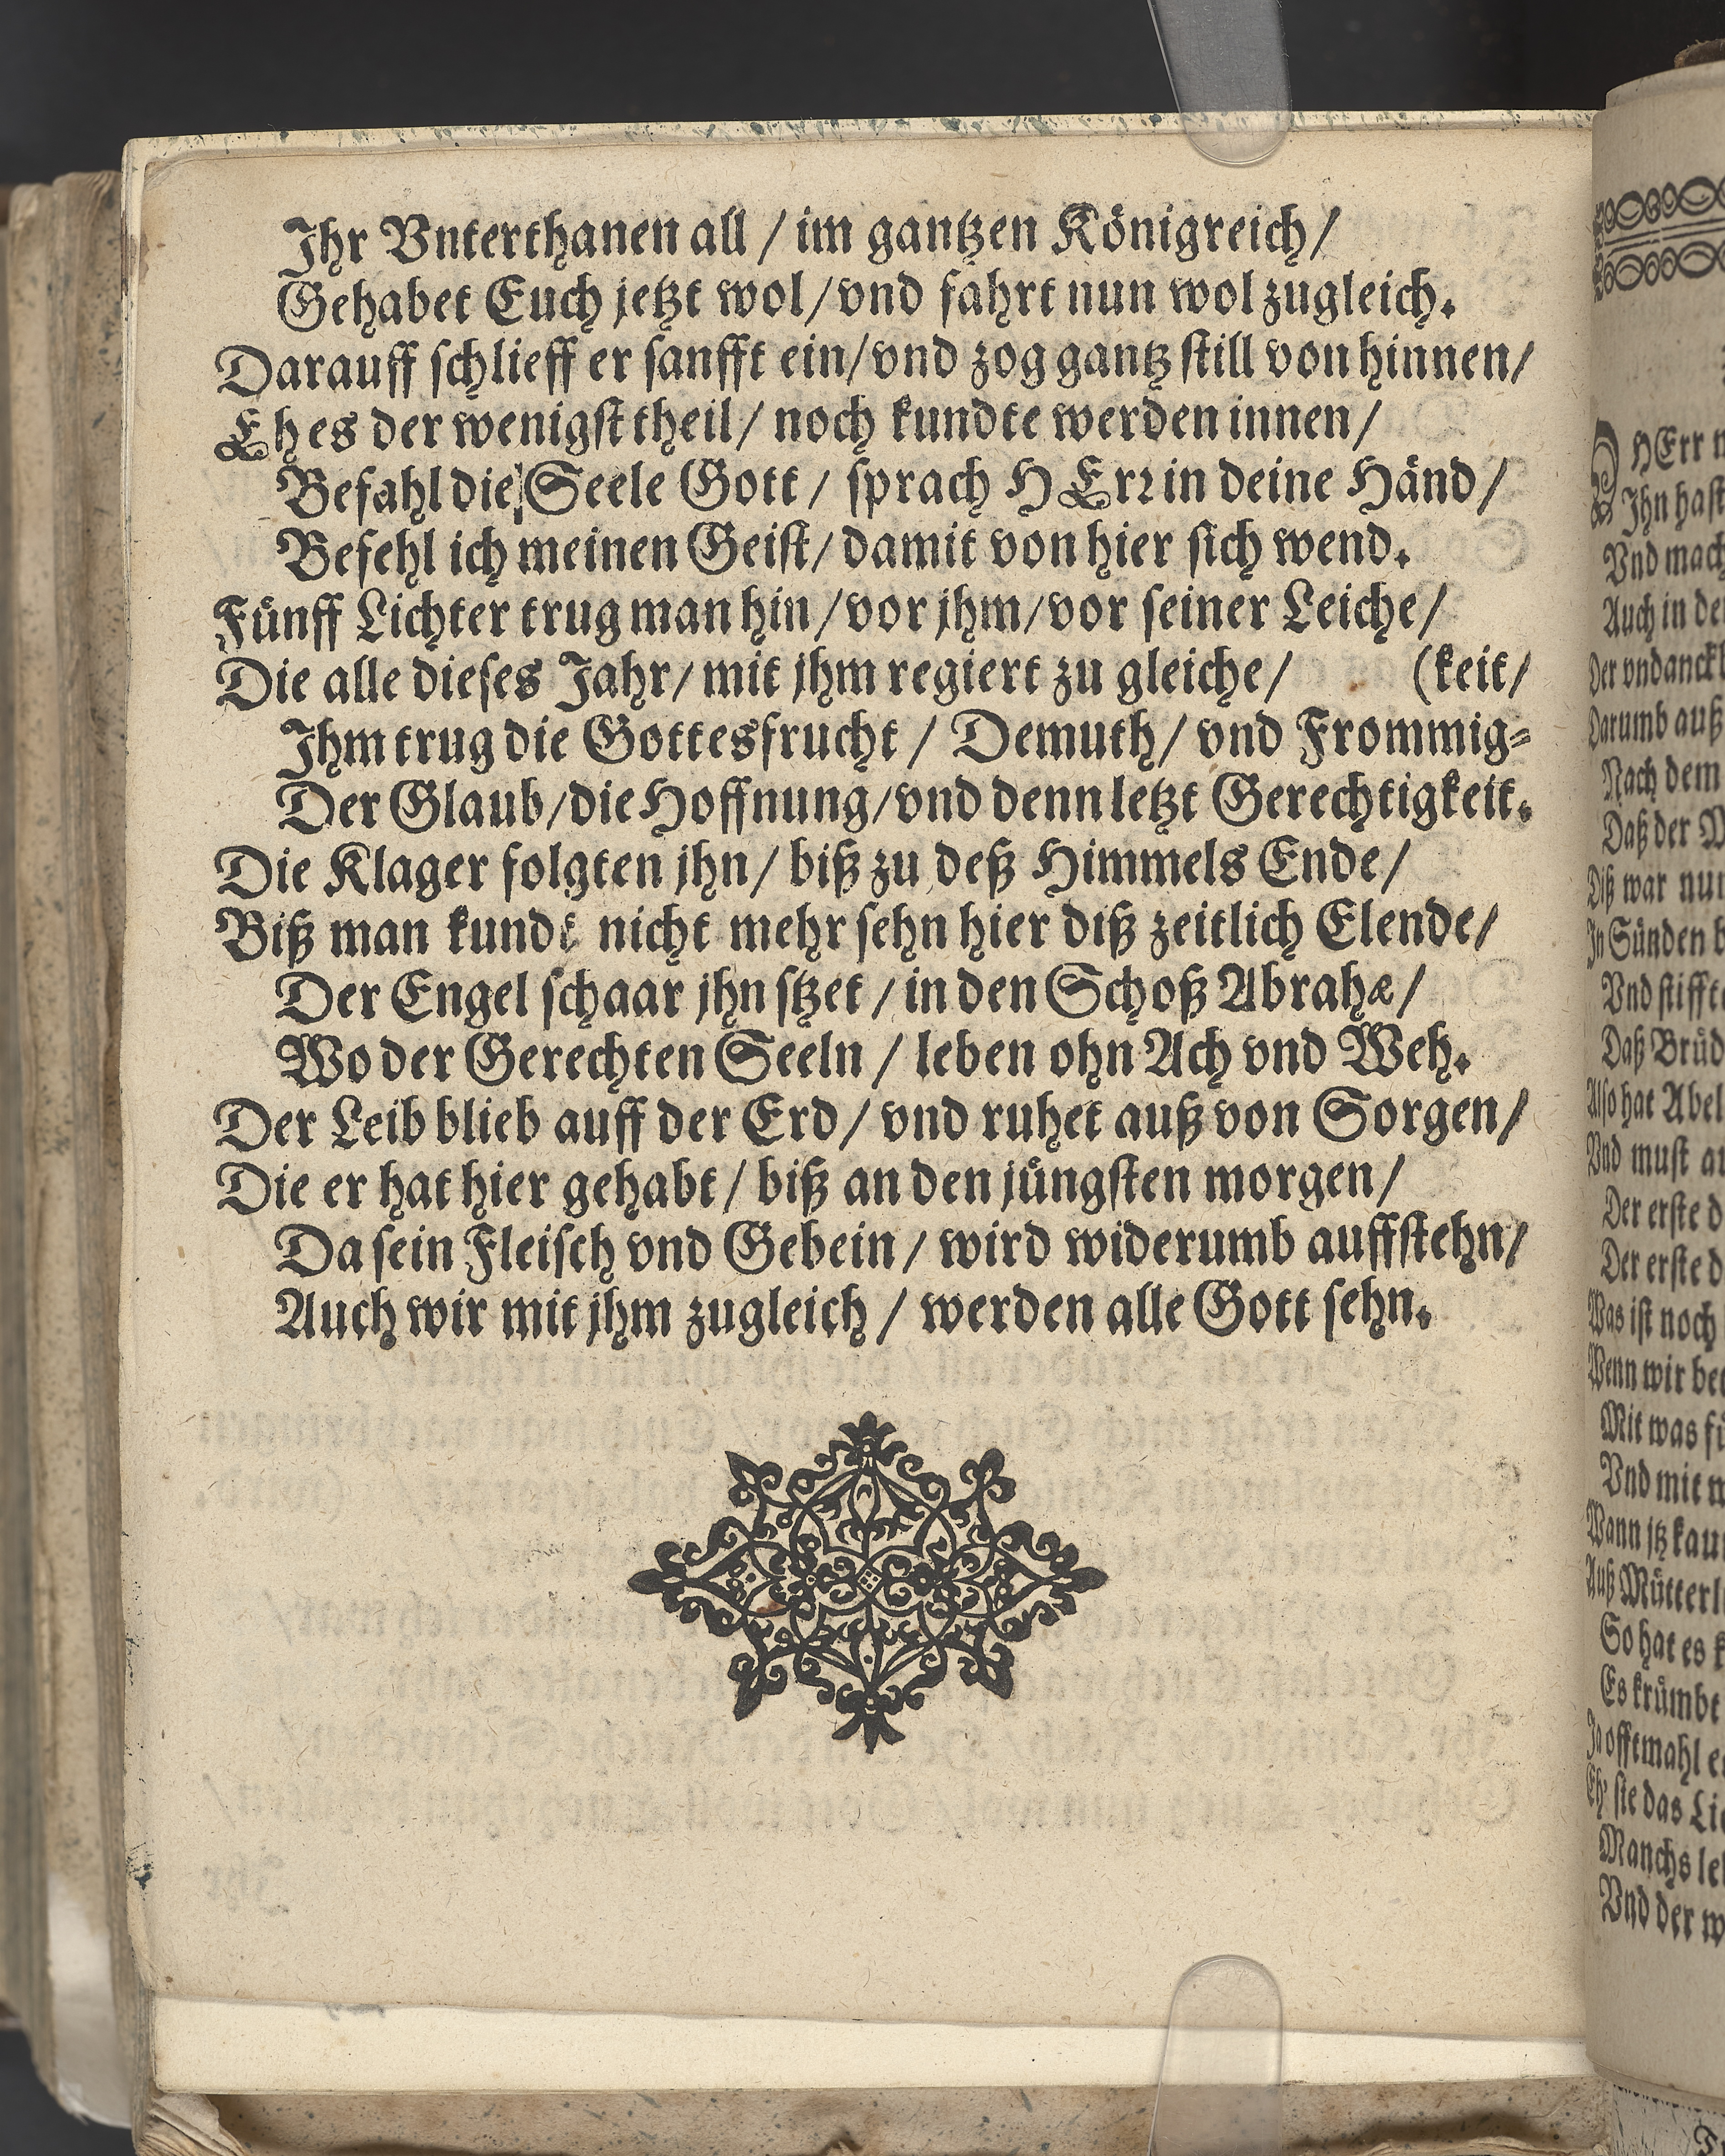 Ihr Vnterthanen all / im gantzen Königreich /
Gehabet Euch jetzt wol / vnd fahrt nun wol zugleich.
Darauff schlieff er sanfft ein / vnd zog gantz still von hinnen /
Eh es der wenigst theil / noch kundte werden innen /
Befahl die Seele Gott / sprach HErr in deine Händ /
Befehl ich meinen Geist / damit von hier sich wend.
Fünff Lichter trug man hin / vor jhm / vor seiner Leiche /
Die alle dieses Jahr / mit jhm regiert zu gleiche / (keit /
Ihm trug die Gottesfrucht / Demuth / vnd Frommig-
Der Glaub / die Hoffnung / vnd denn letzt Gerechtigkeit.
Die Klager folgten jhn / biß zu deß Himmels Ende /
Biß man kundt nicht mehr sehn hier diß zeitlich Elende /
Der Engel schaar jhn stzet / in den Schoß Abrahæ /
Wo der Gerechten Seeln / leben ohn Ach vnd Weh.
Der Leib blieb auff der Erd / vnd ruhet auß von Sorgen /
Die er hat hier gehabt / biß an den jüngsten morgen /
Da sein Fleisch vnd Gebein / wird widerumb auffstehn /
Auch wir mit jhm zugleich / werden alle Gott sehn.
HErr
Ihn hast
Vnd mach
Auch in
Der vndanck
Darumb auß
Nach dem
Daß der
Diß war nun
In Sünden
Vnd stiffte
Daß Brüd
Also hat Abel
Vnd must
Der erste
Der erste
Was ist noch
Wenn wir
Mit was
Vnd mit
Wann jtz
Auß Mütterl
So hat es
Es krümbt
Ja offtmahl
Eh' sie das
Manchs
Vnd der